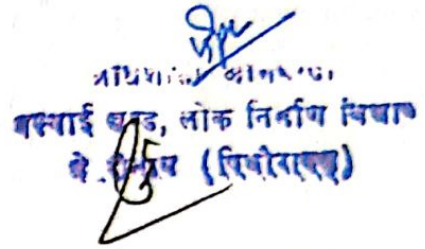 अधिशासी अभियन्ता
अस्थाई खण्ड, लोक निर्माण विभाग
(पिथौरागढ़)